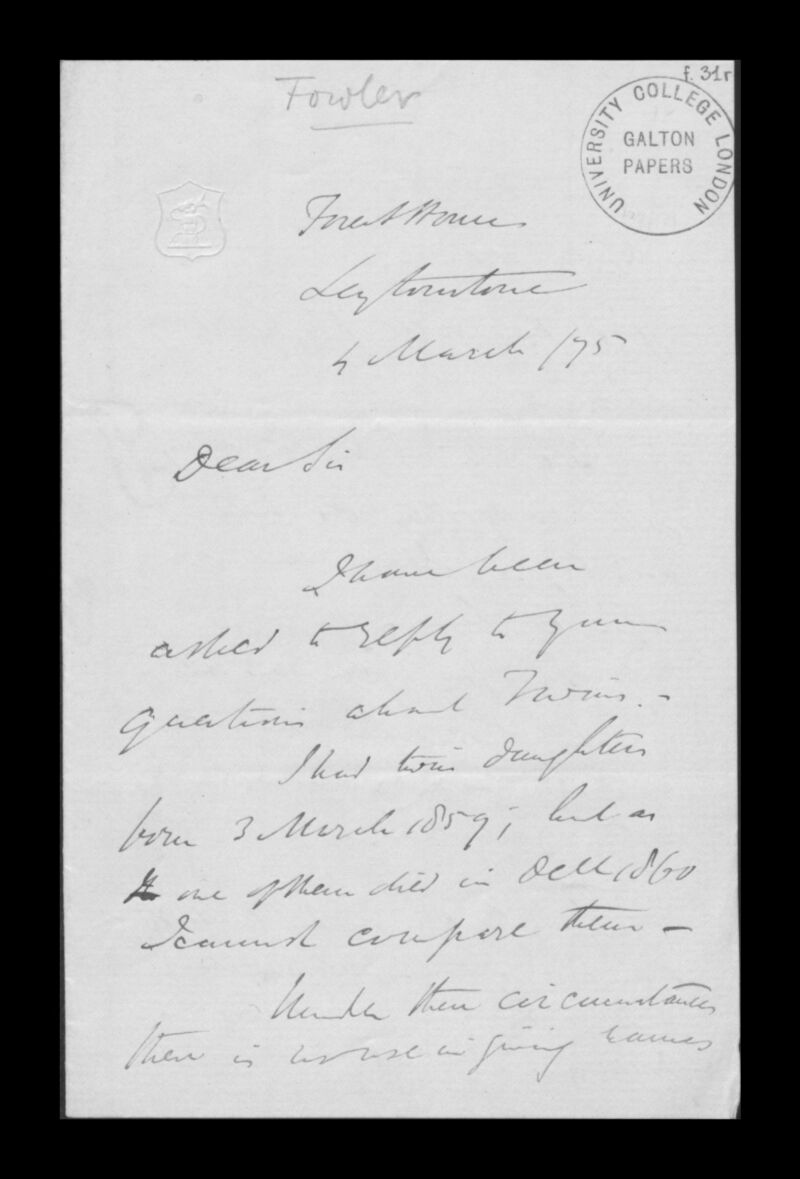 f. 31r
Fowler
UNIVERSITY COLLEGE LONDON
GALTON
PAPERS
Forest House
Leytonstone
4 March /75
Dear Sir
I have been
asked to reply to your
questions about Twins. -
I had twin daughters
born 3 March 1859; but as
one of them died in Decr 1860
I cannot compare them -
Under these circumstances
there is no use in giving names